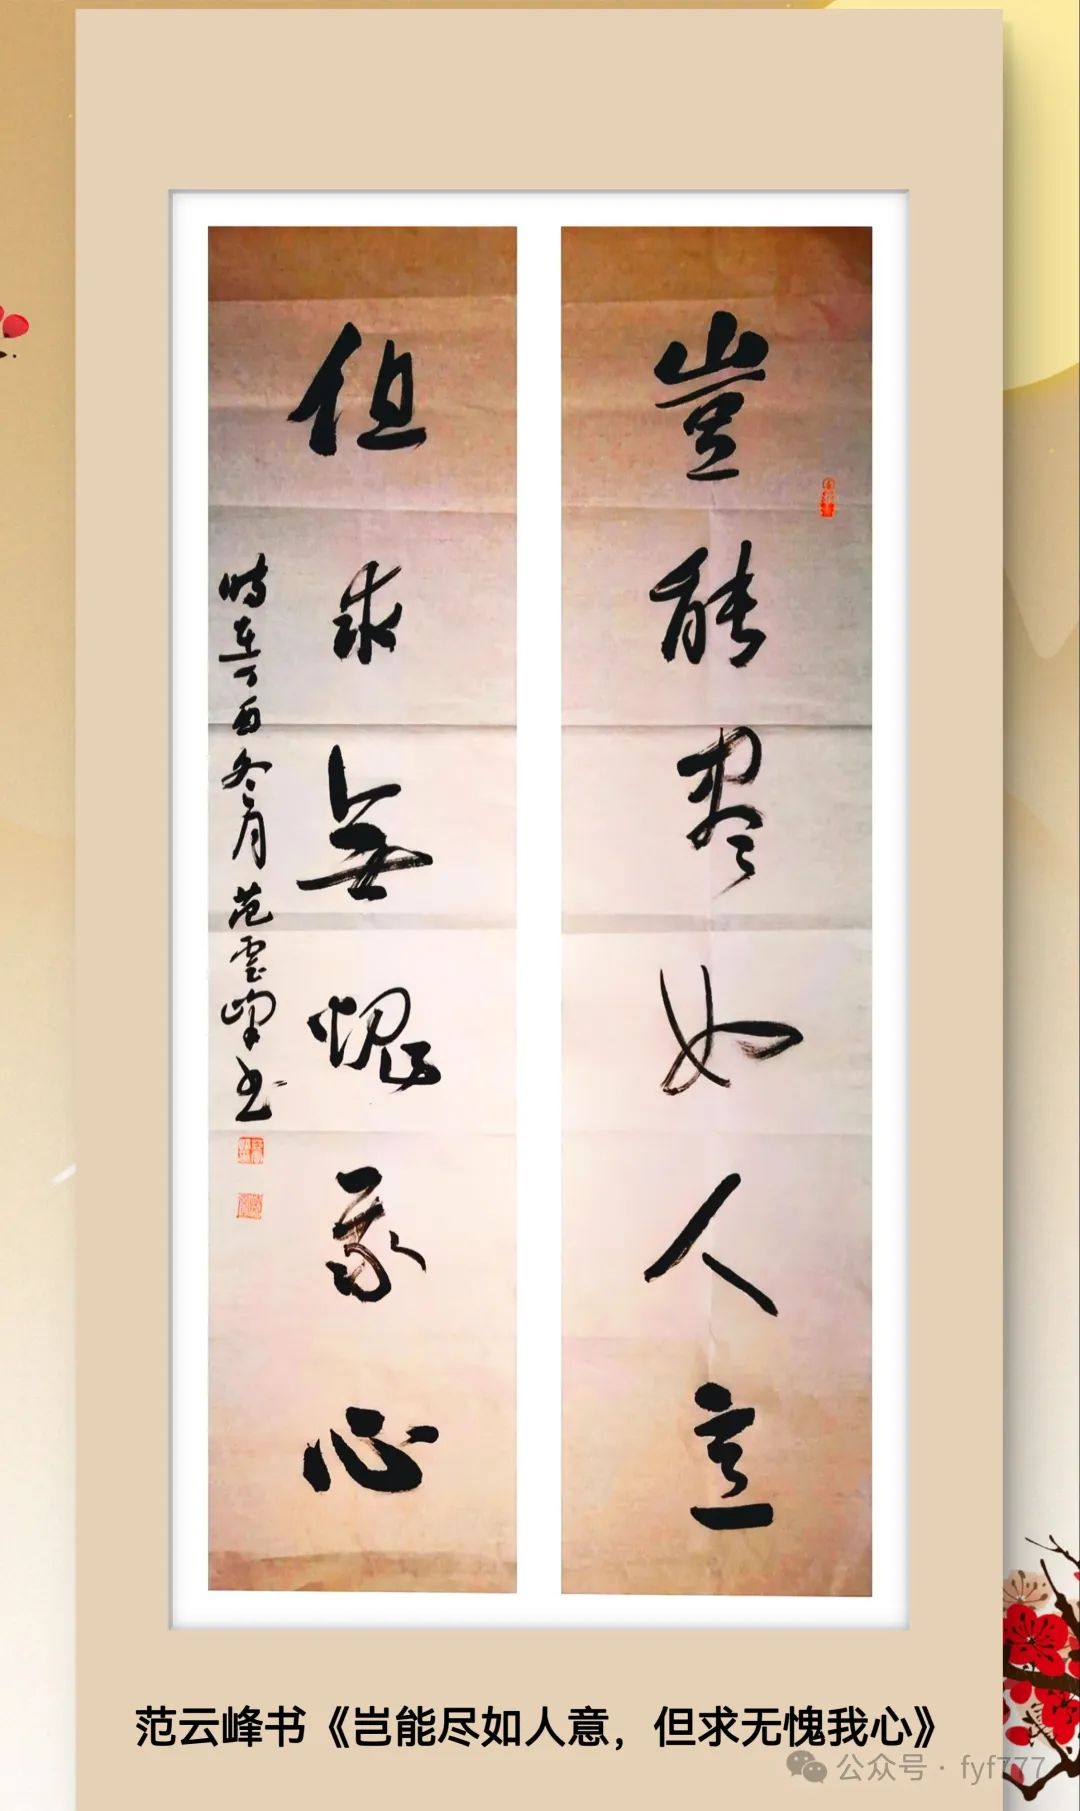 豈能尽如人意
但求無愧我心
時在丁酉冬月范雲峰书
范云峰书《岂能尽如人意，但求无愧我心》
公众号·fyf777